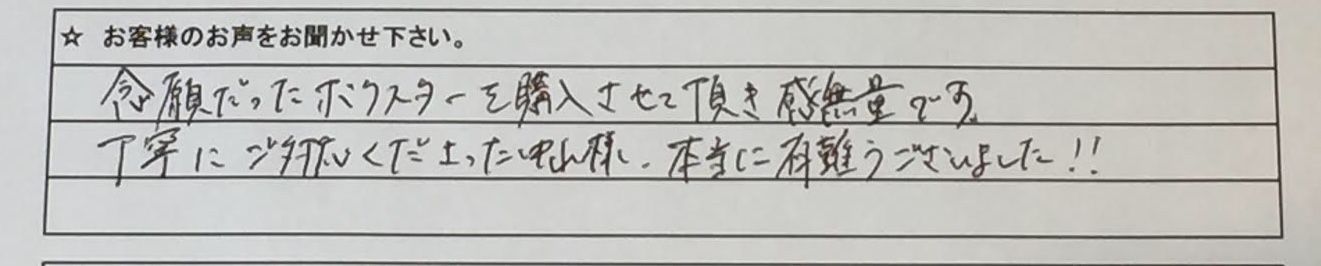 ☆ お客様のお声をお聞かせ下さい。
念願だったボクスターを購入させて頂き感無量です。
丁寧にご対応くださった中山様、本当に有難うございました!!